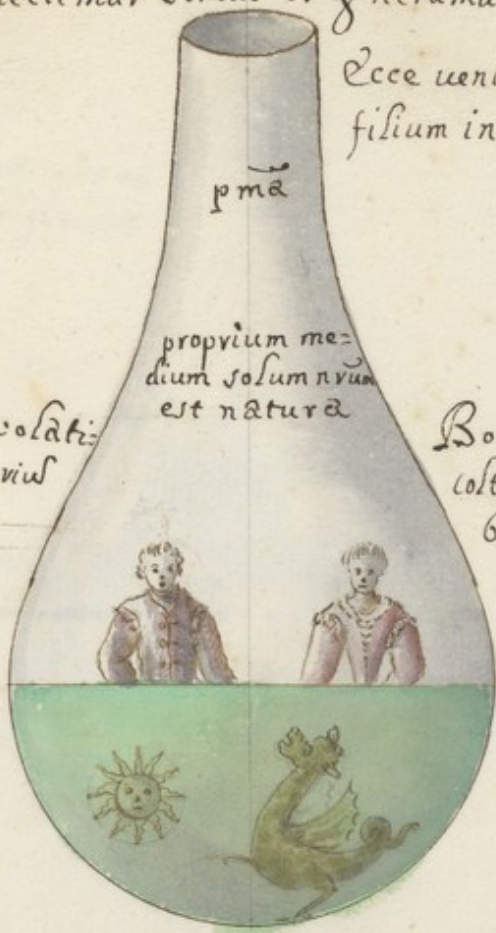 Ecce ueni
filium in
pmã
proprium me=
dium solum nrũm
est natura
volati=
rius
Bo